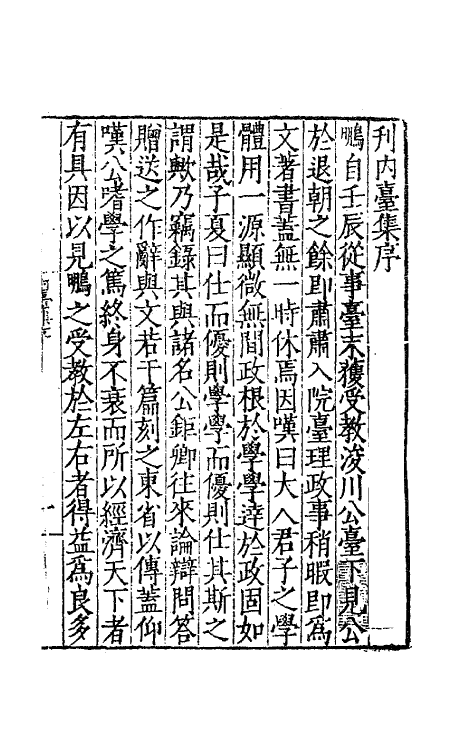 刊內臺集序
鵬自壬辰從事臺末獲受教浚川公臺下見公
於退朝之餘即肅肅入院臺理政事稍暇即爲
文著書蓋無一時休焉因嘆曰大人君子之學
體用一源顯微無間政根於學學達於政固如
是哉子夏曰仕而優則學學而優則仕其斯之
謂歟乃竊錄其與諸名公鉅卿往來論辯問答
贈送之作辭與文若干篇刻之東省以傳蓋仰
嘆公嗜學之篤終身不衰而所以經濟天下者
有具因以見鵬之受教於左右者得益爲良多